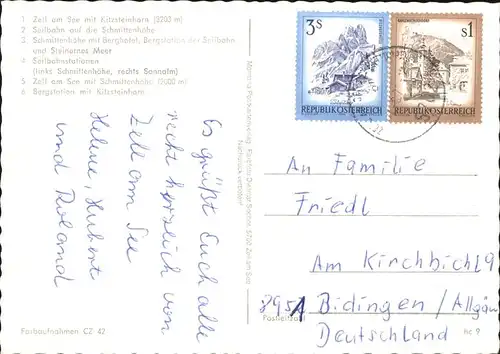 1 Zell am See mit Kitzsteinhorn (3203 m)
2 Seilbahn auf die Schmittenhöhe
3 Schmittenhöhe mit Berghotel, Bergstation der Seilbahn
und Steinernes Meer
4 Seilbahnstationen
(links Schmittenhöhe, rechts Sonnalm)
5 Zell am See mit Schmittenhöhe (2000 m)
6 Bergstation mit Kitzsteinhorn
Es grüßt Euch alle
recht herzlich von
Zell am See
Helene, Hubert
und Roland
Farbaufnahmen CZ 42
Nachdruck verboten!
3s
REPUBLIK ÖSTERREICH
s1
REPUBLIK ÖSTERREICH
An Familie
Friedl
Am Kirchbichl 9
8951 Bidingen / Allgäu
Postleitzahl
Deutschland
hc 9